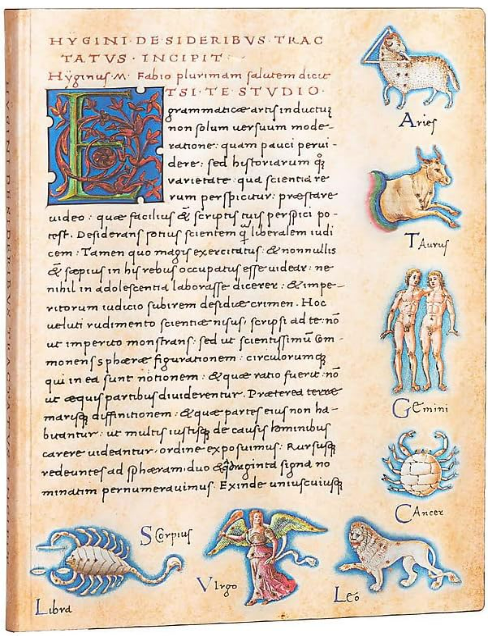 HYGINI·DE SIDERIBVS·TRAC
TATVS·INCIPIT·
Hyginus·M· Fabio plurimam salutem dicit
ETSI·TE STVDIO·
grammaticæ artis inductũ
non solum uersuum mode-
ratione: quam pauci perui-
dere: sed historiarum q₃
varietate: qua scientia re-
rum perspicitur: præstare
uideo: quæ facilius & scriptis tuis perspici po-
test. Desiderans potius scientem q̃ liberalem iudi
cem: Tamen quo magis exercitatus: & nonnullis
& sæpius in his rebus occupatus esse uidear: ne-
nihil in adolescentia laborasse dicerer: & impe-
ritorum iudicio subirem desidiæ crimen. Hoc
ueluti rudimento scientiæ nisus, scripsi ad te: nõ
ut imperito monstrans: sed ut scientissimũ Com-
monens sphæræ figurationem: circulorumq₃
qui in ea sunt notionem: & quæ ratio fuerit: nõ
ut æquis partibus diuiderentur. Præterea terræ
marisq₃ diffinitionem: & quæ partes eius non ha-
bitantur: ut multis iustisq₃ de causis hominibus
carere uideantur: ordine exposuimus. Rursusq₃
redeuntes ad sphæram: duo & quadraginta signa no
minatim pernumerauimus. Exinde uniuscuiusq₃
Aries
TAurus
GEmini
CAncer
LEo
VIrgo
SCorpius
Libra